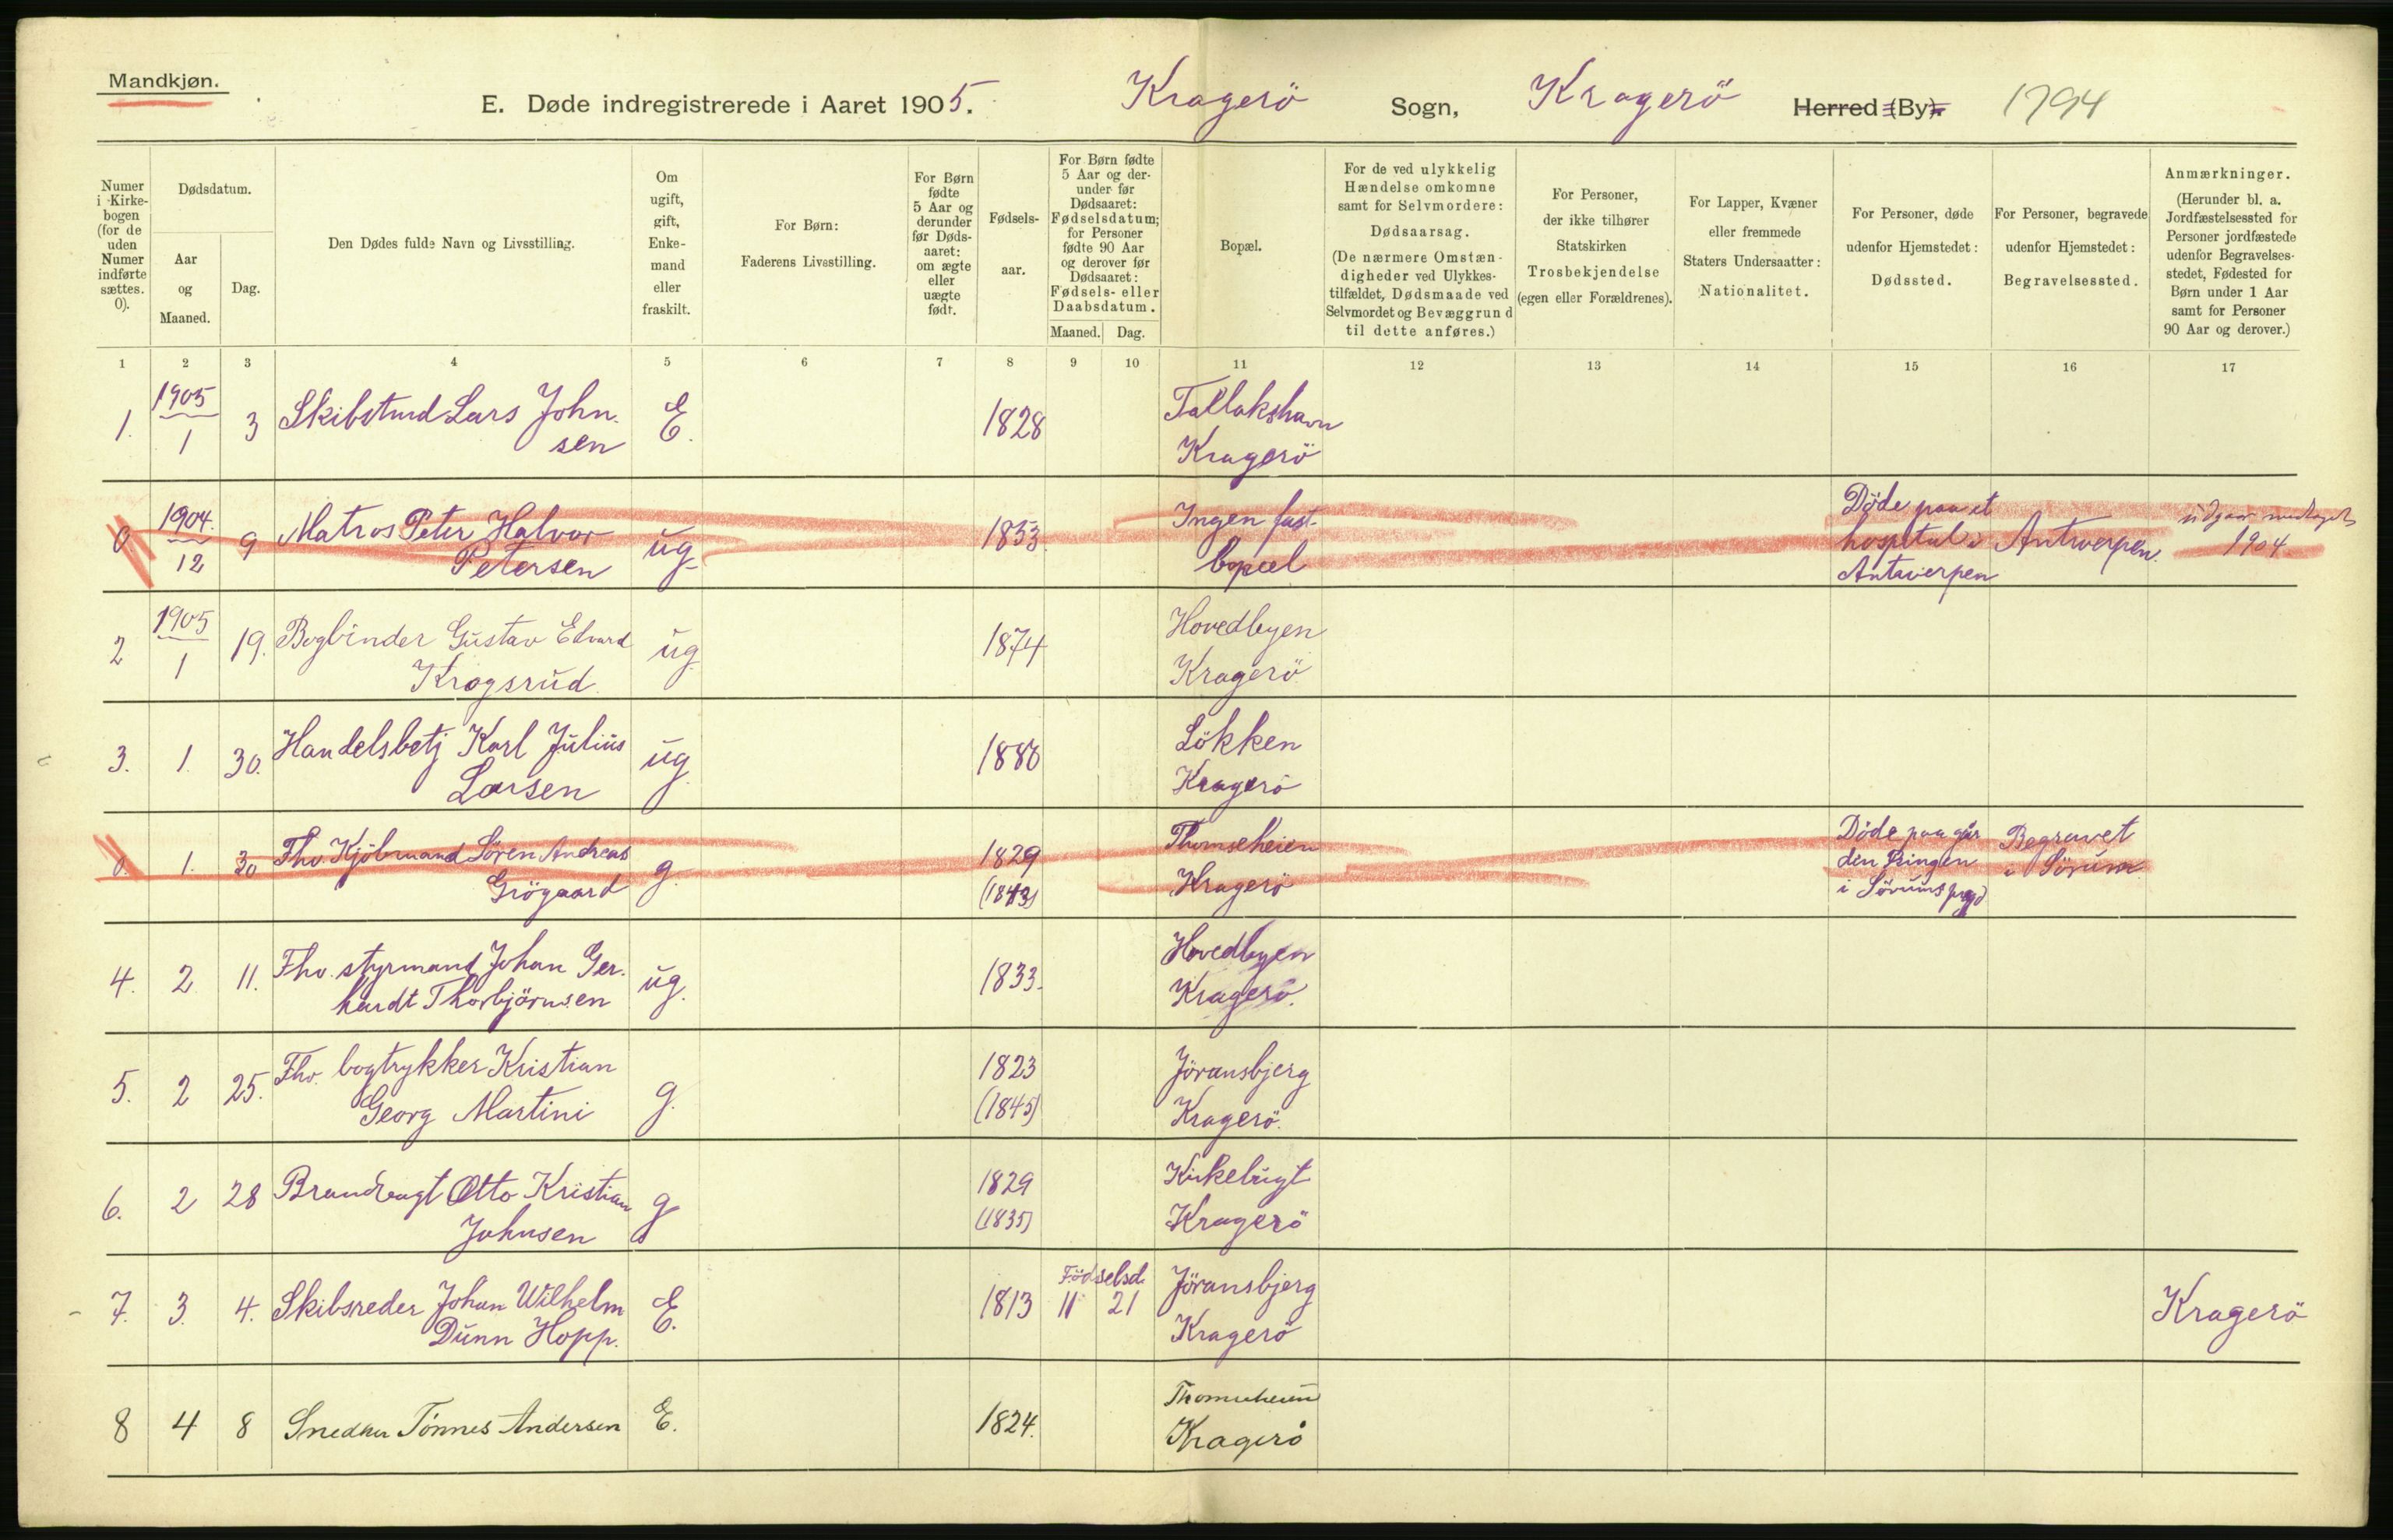 Mandkjøn.
E. Døde indregistrerede i Aaret 1905. Kragerö Sogn, Kragerö Herred (By). 1794
Numer i Kirke-bogen (for de uden Numer indførte sættes. 0).
Dødsdatum.
Aar og Maaned.
Dag.
Den Dødes fulde Navn og Livsstilling.
Om ugift, gift, Enke-mand eller fraskilt.
For Børn:
Faderens Livsstilling.
For Børn fødte 5 Aar og derunder før Døds-aaret: om ægte eller uægte født.
Fødsels-aar.
For Børn fødte 5 Aar og der-under før Dødsaaret: Fødselsdatum; for Personer fødte 90 Aar og derover før Dødsaaret: Fødsels- eller Daabsdatum.
Maaned. Dag.
Bopæl.
For de ved ulykkelig Hændelse omkomne samt for Selvmordere: Dødsaarsag. (De nærmere Omstæn-digheder ved Ulykkes-tilfældet, Dødsmaade ved Selvmordet og Bevæggrund til dette anføres.)
For Personer, der ikke tilhører Statskirken Trosbekjendelse (egen eller Forældrenes).
For Lapper, Kvæner eller fremmede Staters Undersaatter: Nationalitet.
For Personer, døde udenfor Hjemstedet: Dødssted.
For Personer, begravede udenfor Hjemstedet: Begravelsessted.
Anmærkninger. (Herunder bl. a. Jordfæstelsessted for Personer jordfæstede udenfor Begravelses-stedet, Fødested for Børn under 1 Aar samt for Personer 90 Aar og derover.)
1 2 3 4 5 6 7 8 9 10 11 12 13 14 15 16 17
1. 1905 1 3 Skibstmd Lars John. E. 1828 Tallakshavn
sen Kragerö
0 1904. 12 9 Matros Peter Halvor ug. 1853. Ingen fast. Döde paa et
Petersen bopæl hospital i Antwerpen. udgaar medtaget
Antwerpen 1904
2 1905 1 19. Bogbinder Gustav Edvard ug. 1874 Hovedbyen
Krogsrud. Kragerö
3. 1. 30. Handelsbetj Karl Julius ug. 1880 Lökken
Larsen Kragerö
0. 1. 30 Fhv. Kjöbmand Sören Andreas g. 1829 Thomseheien Döde paa går Begravet
Grögaard (1843) Kragerö den Ringen i Sörum
i Sörums
4. 2 11. Fhv. styrmand Johan Ger. ug. 1833. Hovedbyen
hardt Thorbjörnsen Kragerö.
5. 2 25. Fhv. bogtrykker Kristian g. 1823 Jöransbjerg
Georg Martini (1845) Kragerö.
6. 2 28 Brandvagt Otto Kristian g 1829 Kirkebugt
Johnsen (1835) Kragerö
7. 3. 4. Skibsreder Johan Wilhelm E. 1813 Födselsd. 11 21 Jöransbjerg Kragerö
Dunn Hopp. Kragerö
8 4 8 Snedker Tönnes Andersen E. 1824. Thomseheien
Kragerö